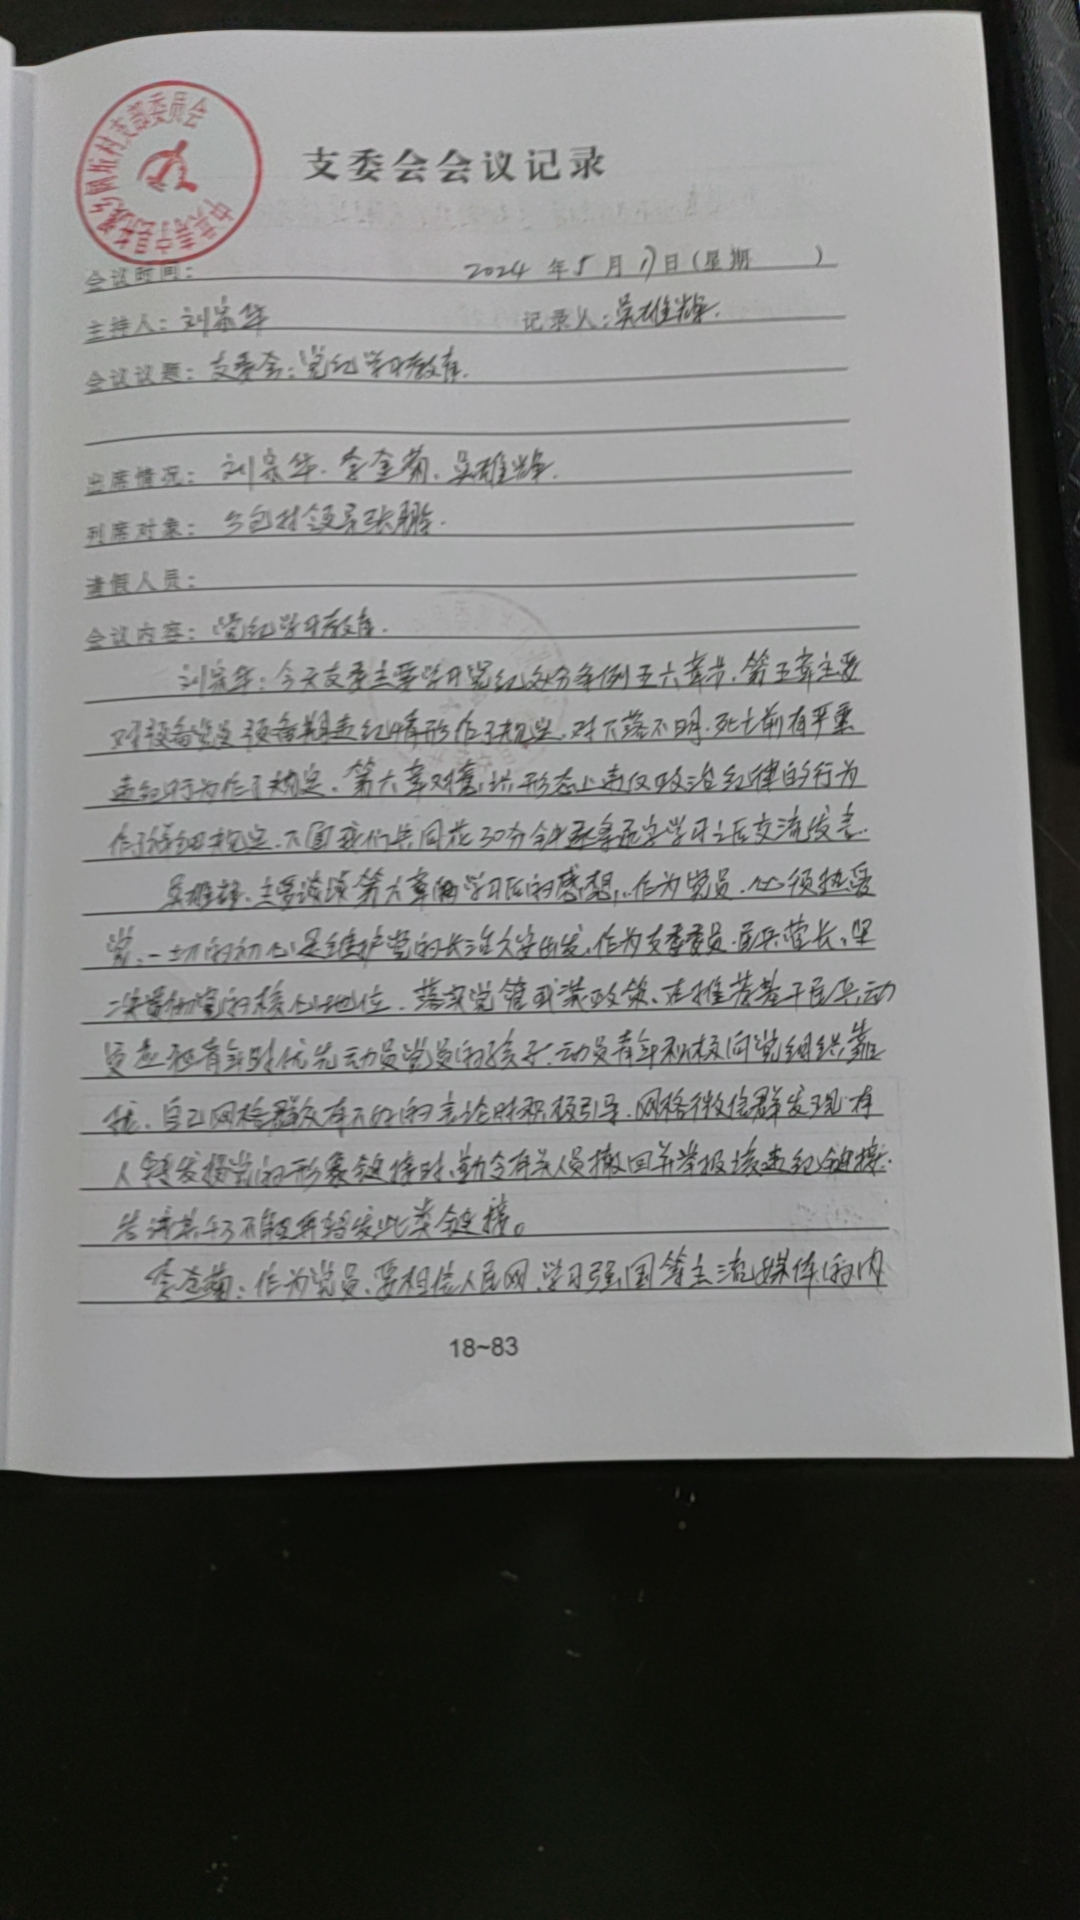 支部委员会
支委会会议记录
会议时间: 2024 年 5 月 17日(星期 )
主持人: 刘宗华 记录人: 吴雄辉.
会议议题: 支委会: 党纪学习教育.
出席情况: 刘宗华. 李金菊、吴雄辉.
列席对象: 乡包村领导张鹏.
请假人员:
会议内容: 党纪学习教育.
刘宗华: 今天支委主要学习党纪处分条例五六章节、第五章主要
对预备党员预备期违纪情形作了规定、对下落不明、死亡前有严重
违纪行为作了规定、第六章对意识形态上违反政治纪律的行为
作了详细规定、下面我们共同花30分钟逐条逐字学习之后交流发言.
吴雄辉、主要谈谈第六章学习后的感想, 作为党员、必须热爱
党、一切的初心是维护党的长治久安出发、作为支委委员、民兵营长、坚
决贯彻党的核心地位、落实党管武装政策、在推荐基干民兵、动
员应征青年时优先动员党员的孩子、动员青年积极向党组织靠
拢、自己网格群众有不好的言论时积极引导、网格微信群发现有
人转发损党的形象链接时、勒令有关人员撤回并举报该违纪链接.
告诫其千万不能再转发此类链接。
李金菊: 作为党员、要相信人民网、学习强国等主流媒体的内
18~83